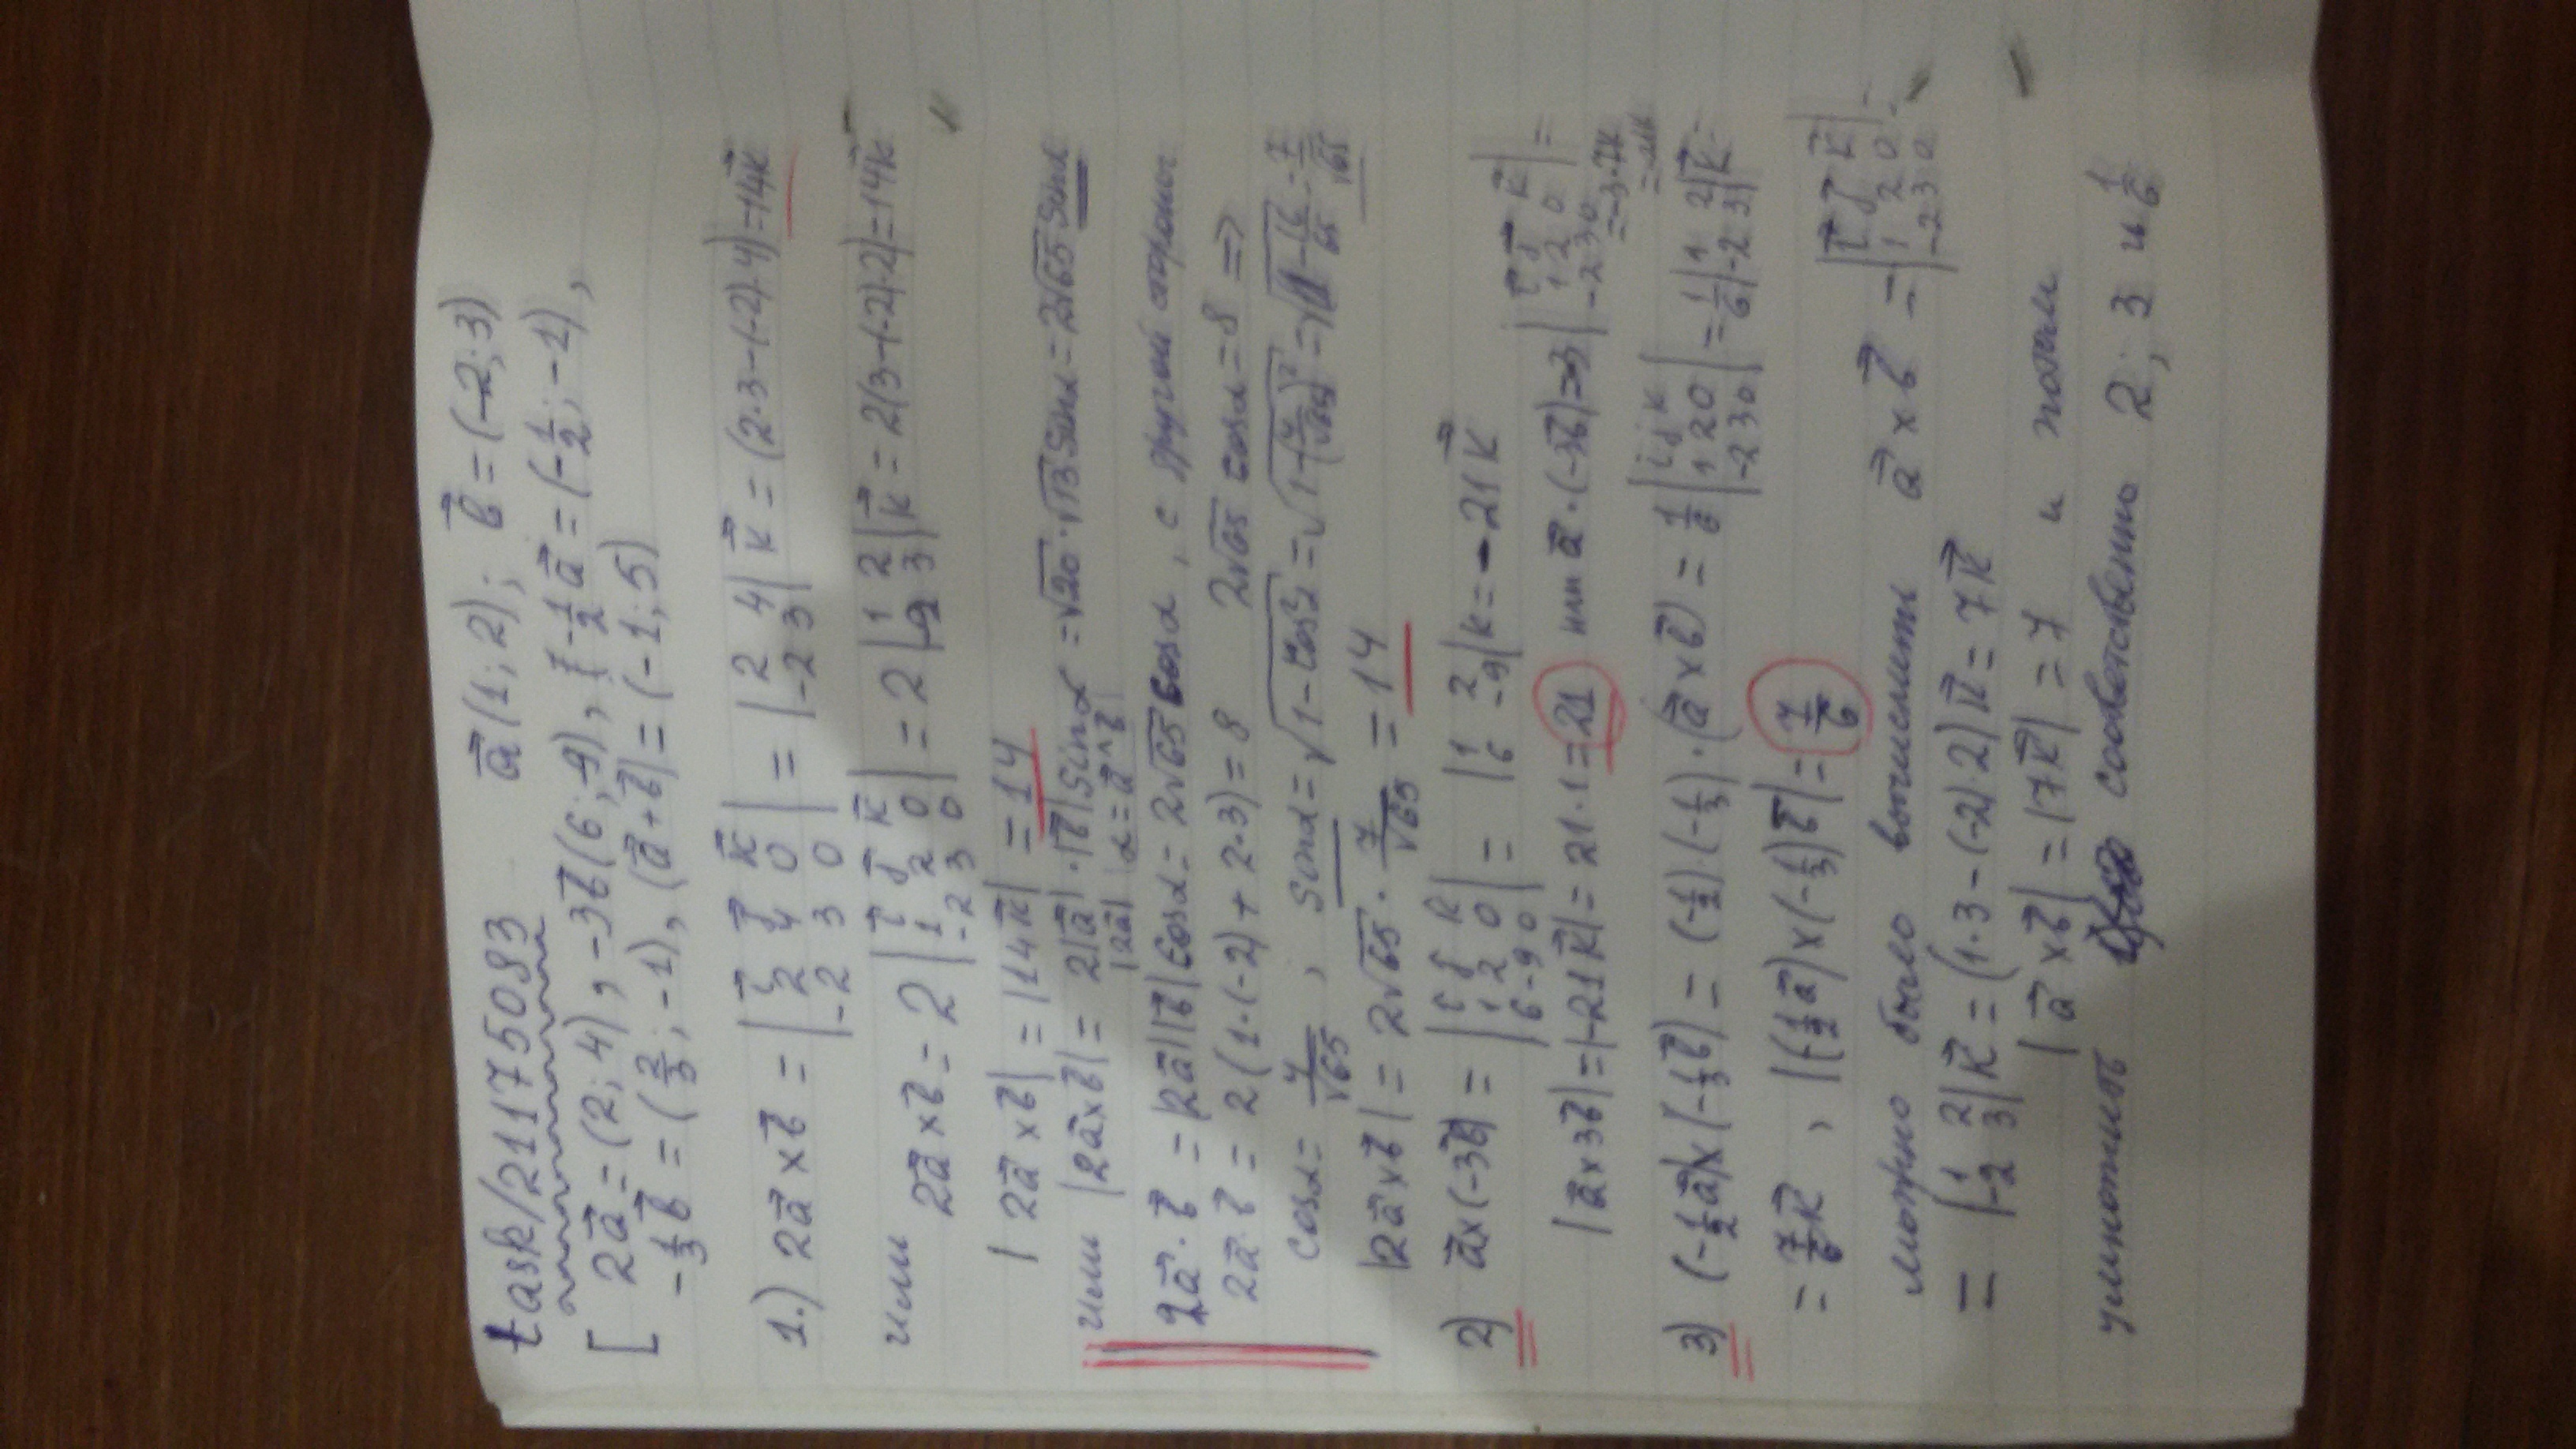 task/21175083 a⃗(1; 2); b⃗=(-2; 3)
[ 2a⃗=(2; 4), -3b⃗(6; -9), -1/2 a⃗=(-1/2; -1),
-1/3 b⃗=(2/3; -1), (a⃗+b⃗)=(-1; 5)
1.) 2a⃗×b⃗ = |i⃗ j⃗ k⃗; 2 4 0; -2 3 0| = |2 4; -2 3| k⃗ = (2·3-(-2)·4)=14k⃗
или 2a⃗×b⃗ = 2 |i⃗ j⃗ k⃗; 1 2 0; -2 3 0| = 2 |1 2; -2 3| k⃗ = 2(3-(-2)·2)=14k⃗
|2a⃗×b⃗| = |14k⃗| = 14
или |2a⃗×b⃗| = 2|a⃗|·|b⃗| sinα = √20·√13 sinα = 2√65 sinα
|2a⃗| α=a⃗^b⃗
2a⃗·b⃗ = |2a⃗||b⃗| cosα = 2√65 cosα, с другой стороны
2a⃗·b⃗ = 2(1·(-2)+2·3)=8 2√65 cosα=8 =>
cosα= 4/√65, sinα=√1-cos²α=√1-(4/√65)²=√1-16/65=7/√65
|2a⃗×b⃗| = 2√65 · 7/√65 = 14
2) a⃗×(-3b⃗) = |i j k; 1 2 0; 6 -9 0| = |1 2; 6 -9| k = -21k⃗
|a⃗×3b⃗|=|-21k⃗|=21·1=21 или a⃗·(-3b⃗)=-3 |i⃗ j⃗ k⃗; 1 2 0; -2 3 0| =
=-3·7k
3) (-1/2 a⃗)×(-1/3 b⃗) = (-1/2)·(-1/3)·(a⃗×b⃗) = 1/6 |i j k; 1 2 0; -2 3 0| = 1/6 |1 2; -2 3| k⃗=
= 7/6 k⃗, |(-1/2 a⃗)×(-1/3)b⃗|= 7/6
можно было вычислить a⃗×b⃗ = |i⃗ j⃗ k⃗; 1 2 0; -2 3 0| =
= |1 2; -2 3| k⃗ = (1·3-(-2)·2)k⃗=7k⃗
|a⃗×b⃗|=|7k⃗|=7 и потом
умножить соответственно 2; 3 и 1/6